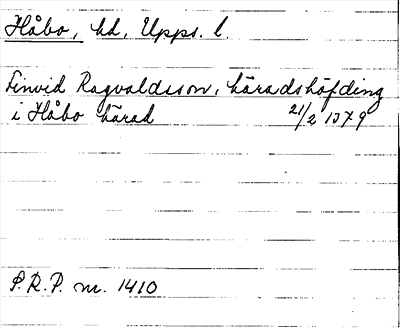 Håbo, hd, Upps. l.
Linvid Ragvaldsson, häradshöfding
i Håbo härad 21/2 1379
P.R.P. nr. 1410